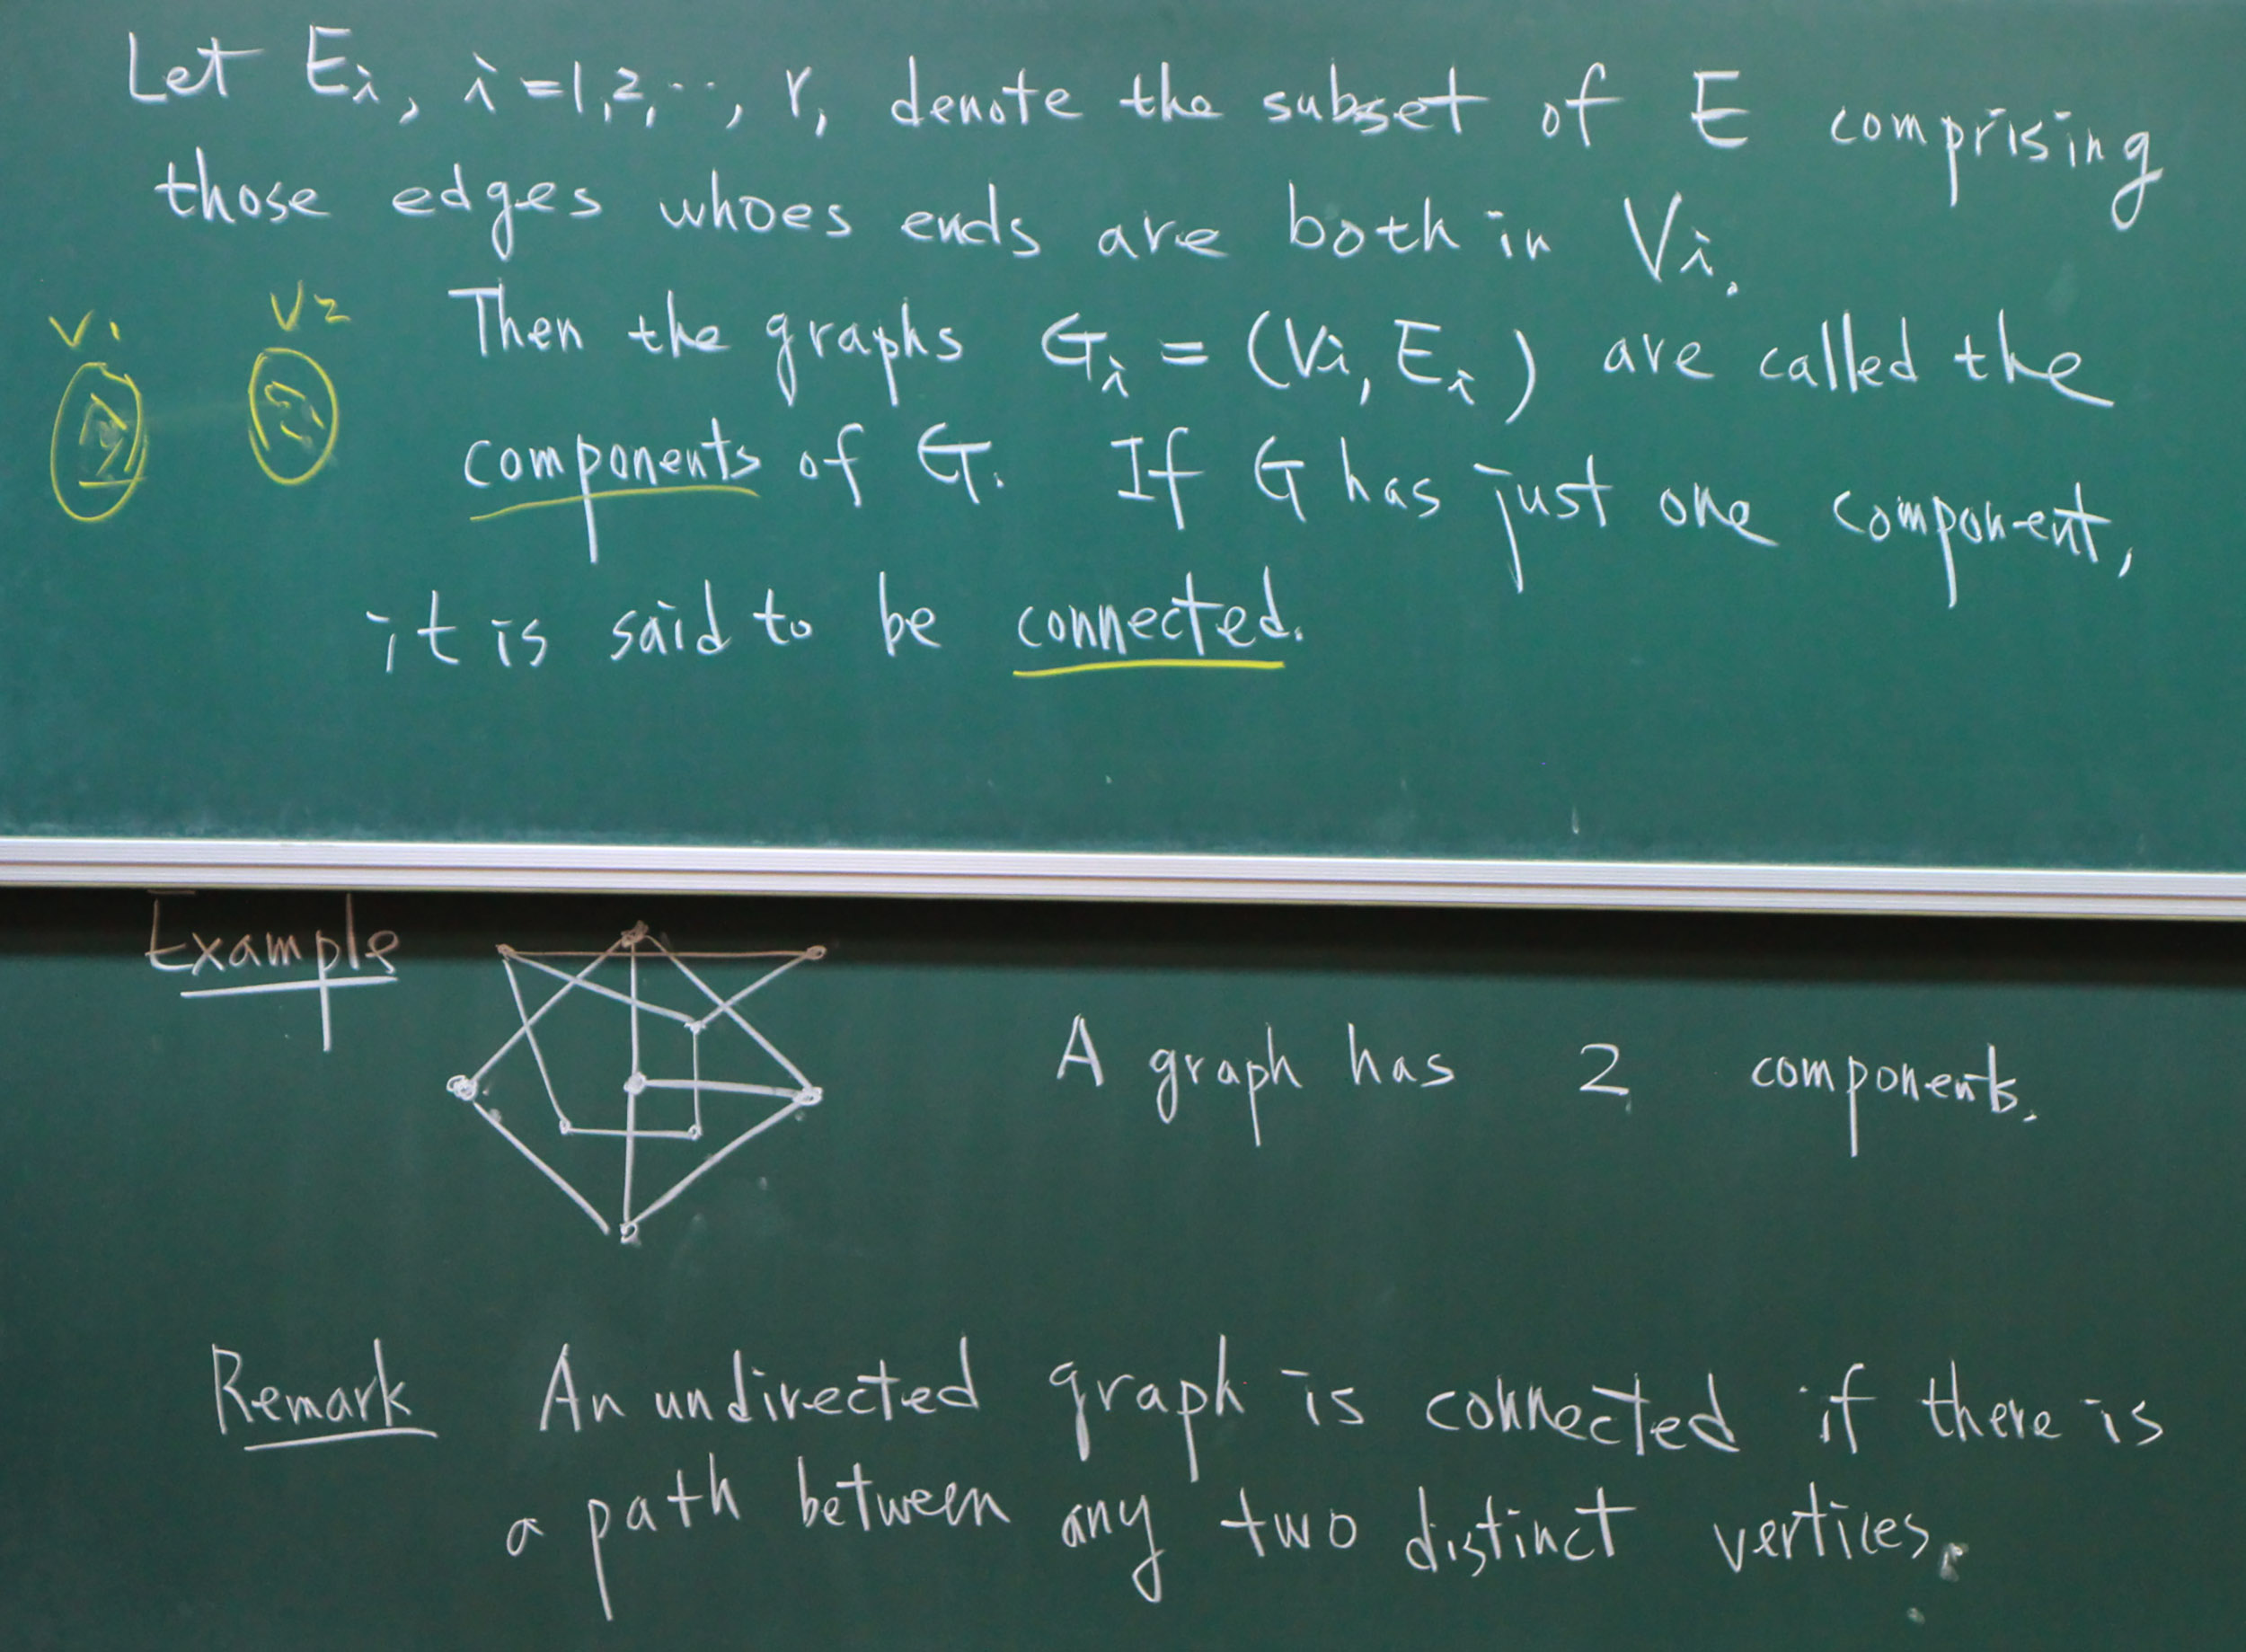 Let Ei, i=1,2,..., r, denote the subset of E comprising
those edges whoes ends are both in Vi.
V1 V2
Then the graphs Gi = (Vi, Ei) are called the
components of G. If G has just one component,
it is said to be connected.
Example
A graph has 2 components.
Remark An undirected graph is connected if there is
a path between any two distinct vertices.